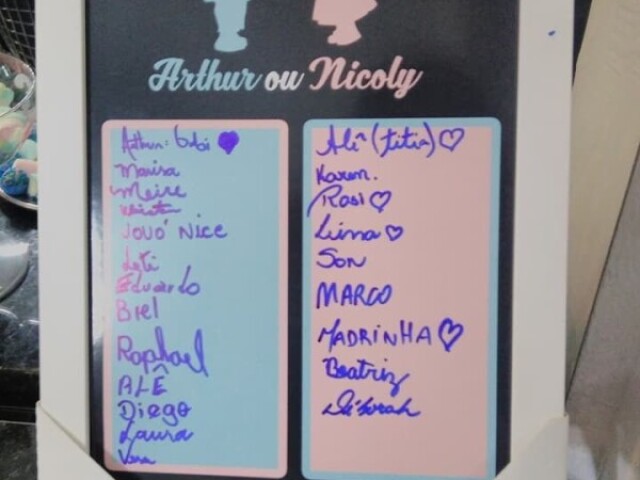 Arthur ou Nicoly
Arthur: Gabi
Marisa
Meire
VOVÓ NICE
Leti
Eduardo
BIEL
Raphael
ALÊ
Diego
Laura
Vera
Alê (titia)
Karen.
Rosi
Luma
SON
MARCO
MADRINHA
Beatriz
Déborah